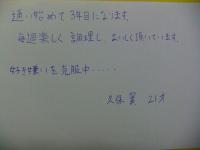 通い始めて3年目になります。
毎週楽しく調理し、おいしく頂いています。
好き嫌いを克服中‥‥‥
久保 翼 21才